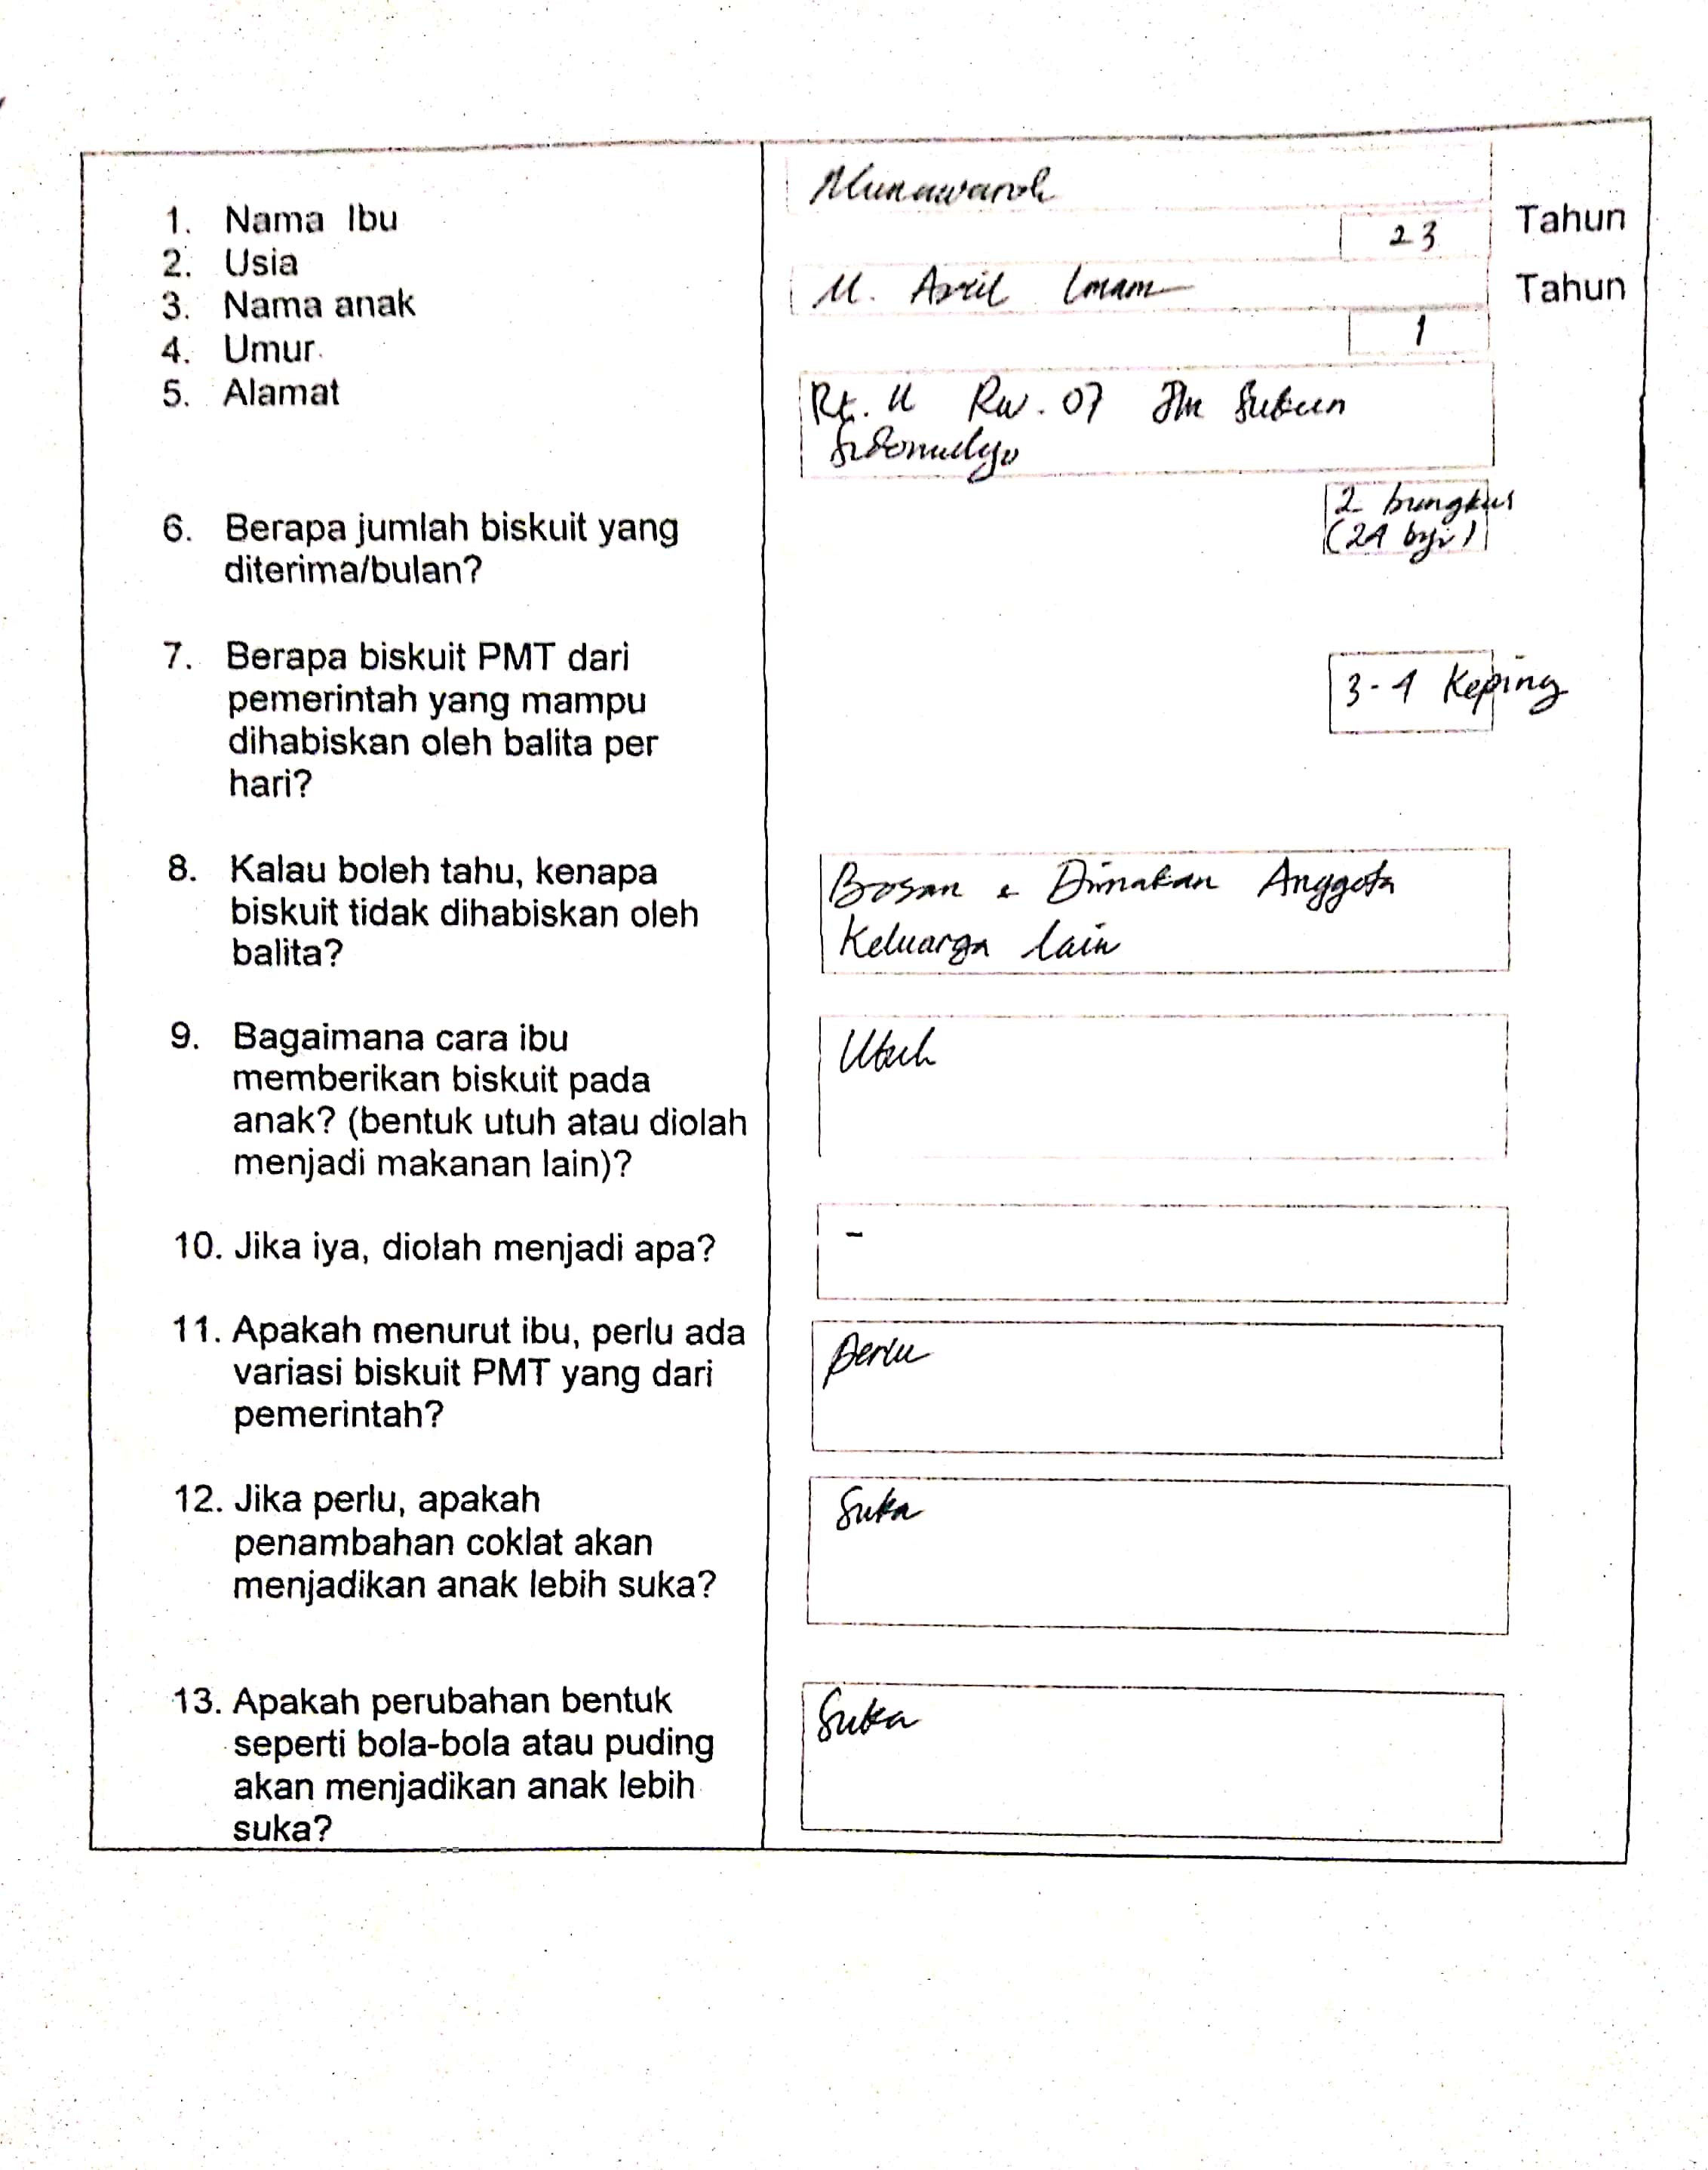 Munawaroh
1. Nama Ibu
Tahun
23
2. Usia
M. Azril Imam
Tahun
3. Nama anak
1
4. Umur
5. Alamat
Rt. 11 Rw. 07 Jln Sukun
Sidomulyo
6. Berapa jumlah biskuit yang
diterima/bulan?
2 bungkus
(24 biji)
7. Berapa biskuit PMT dari
pemerintah yang mampu
dihabiskan oleh balita per
hari?
3-4 Keping
8. Kalau boleh tahu, kenapa
biskuit tidak dihabiskan oleh
balita?
Bosan & Dimakan Anggota
Keluarga lain
9. Bagaimana cara ibu
memberikan biskuit pada
anak? (bentuk utuh atau diolah
menjadi makanan lain)?
Utuh
10. Jika iya, diolah menjadi apa?
-
11. Apakah menurut ibu, perlu ada
variasi biskuit PMT yang dari
pemerintah?
perlu
12. Jika perlu, apakah
penambahan coklat akan
menjadikan anak lebih suka?
Suka
13. Apakah perubahan bentuk
seperti bola-bola atau puding
akan menjadikan anak lebih
suka?
Suka